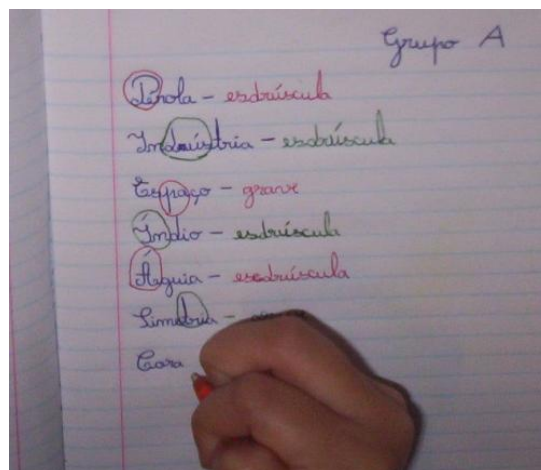 Grupo A
Pérola - esdrúscula
Indústria - esdrúscula
Espaço - grave
Índio - esdrúscula
Águia - esedrúscula
Simetria -
Casa